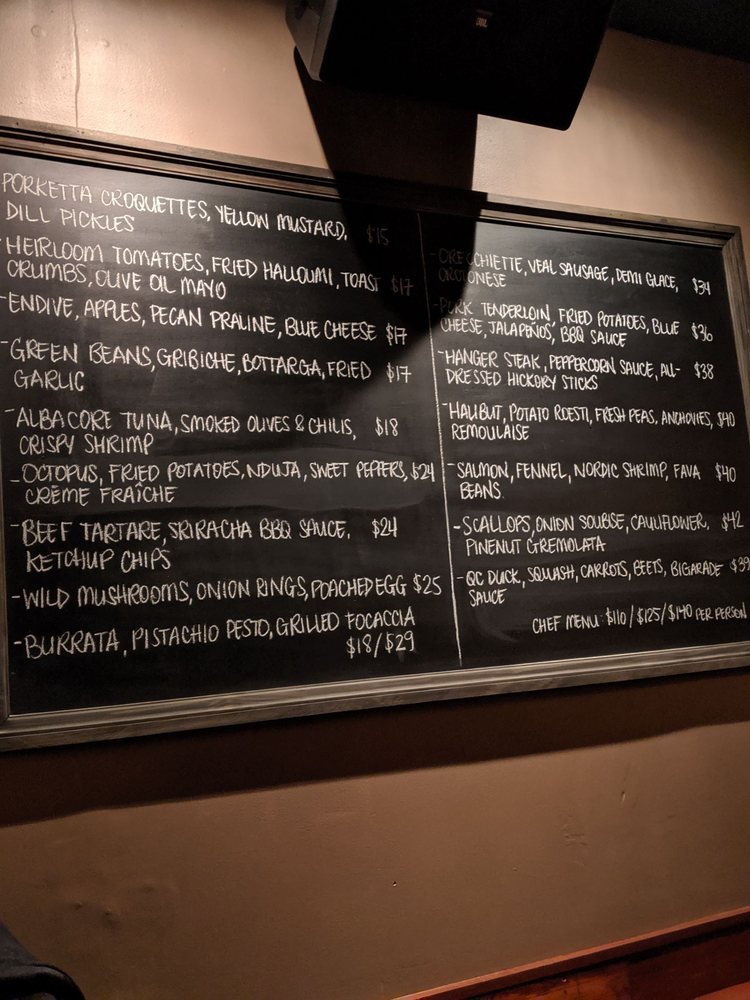 JBL
PORKETTA CROQUETTES, YELLOW MUSTARD, $15
DILL PICKLES
-HEIRLOOM TOMATOES, FRIED HALLOUMI, TOAST $17
CRUMBS, OLIVE OIL MAYO
-ENDIVE, APPLES, PECAN PRALINE, BLUE CHEESE $17
-GREEN BEANS, GRIBICHE, BOTTARGA, FRIED $17
GARLIC
-ALBACORE TUNA, SMOKED OLIVES & CHILIS, $18
CRISPY SHRIMP
-OCTOPUS, FRIED POTATOES, NDUJA, SWEET PEPPERS, $24
CRÈME FRAÎCHE
-BEEF TARTARE, SRIRACHA BBQ SAUCE, $24
KETCHUP CHIPS
-WILD MUSHROOMS, ONION RINGS, POACHED EGG $25
-BURRATA, PISTACHIO PESTO, GRILLED FOCACCIA
$18/$29
-ORECCHIETTE, VEAL SAUSAGE, DEMI GLACE, $34
CROTONESE
-PORK TENDERLOIN, FRIED POTATOES, BLUE $36
CHEESE, JALAPEÑOS, BBQ SAUCE
-HANGER STEAK, PEPPERCORN SAUCE, ALL- $38
DRESSED HICKORY STICKS
-HALIBUT, POTATO ROESTI, FRESH PEAS, ANCHOVIES, $40
REMOULAISE
-SALMON, FENNEL, NORDIC SHRIMP, FAVA $40
BEANS
-SCALLOPS, ONION SOUBISE, CAULIFLOWER, $42
PINENUT GREMOLATA
-QC DUCK, SQUASH, CARROTS, BEETS, BIGARADE $39
SAUCE
CHEF MENU: $110/$125/$140 PER PERSON